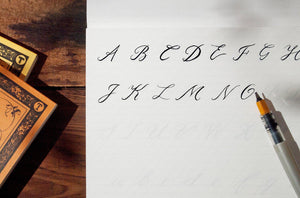 A B C D E F G H
J K L M N O